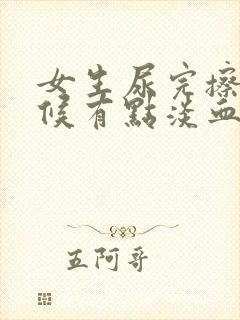 女生尿完擦
候有點淡血
五阿哥